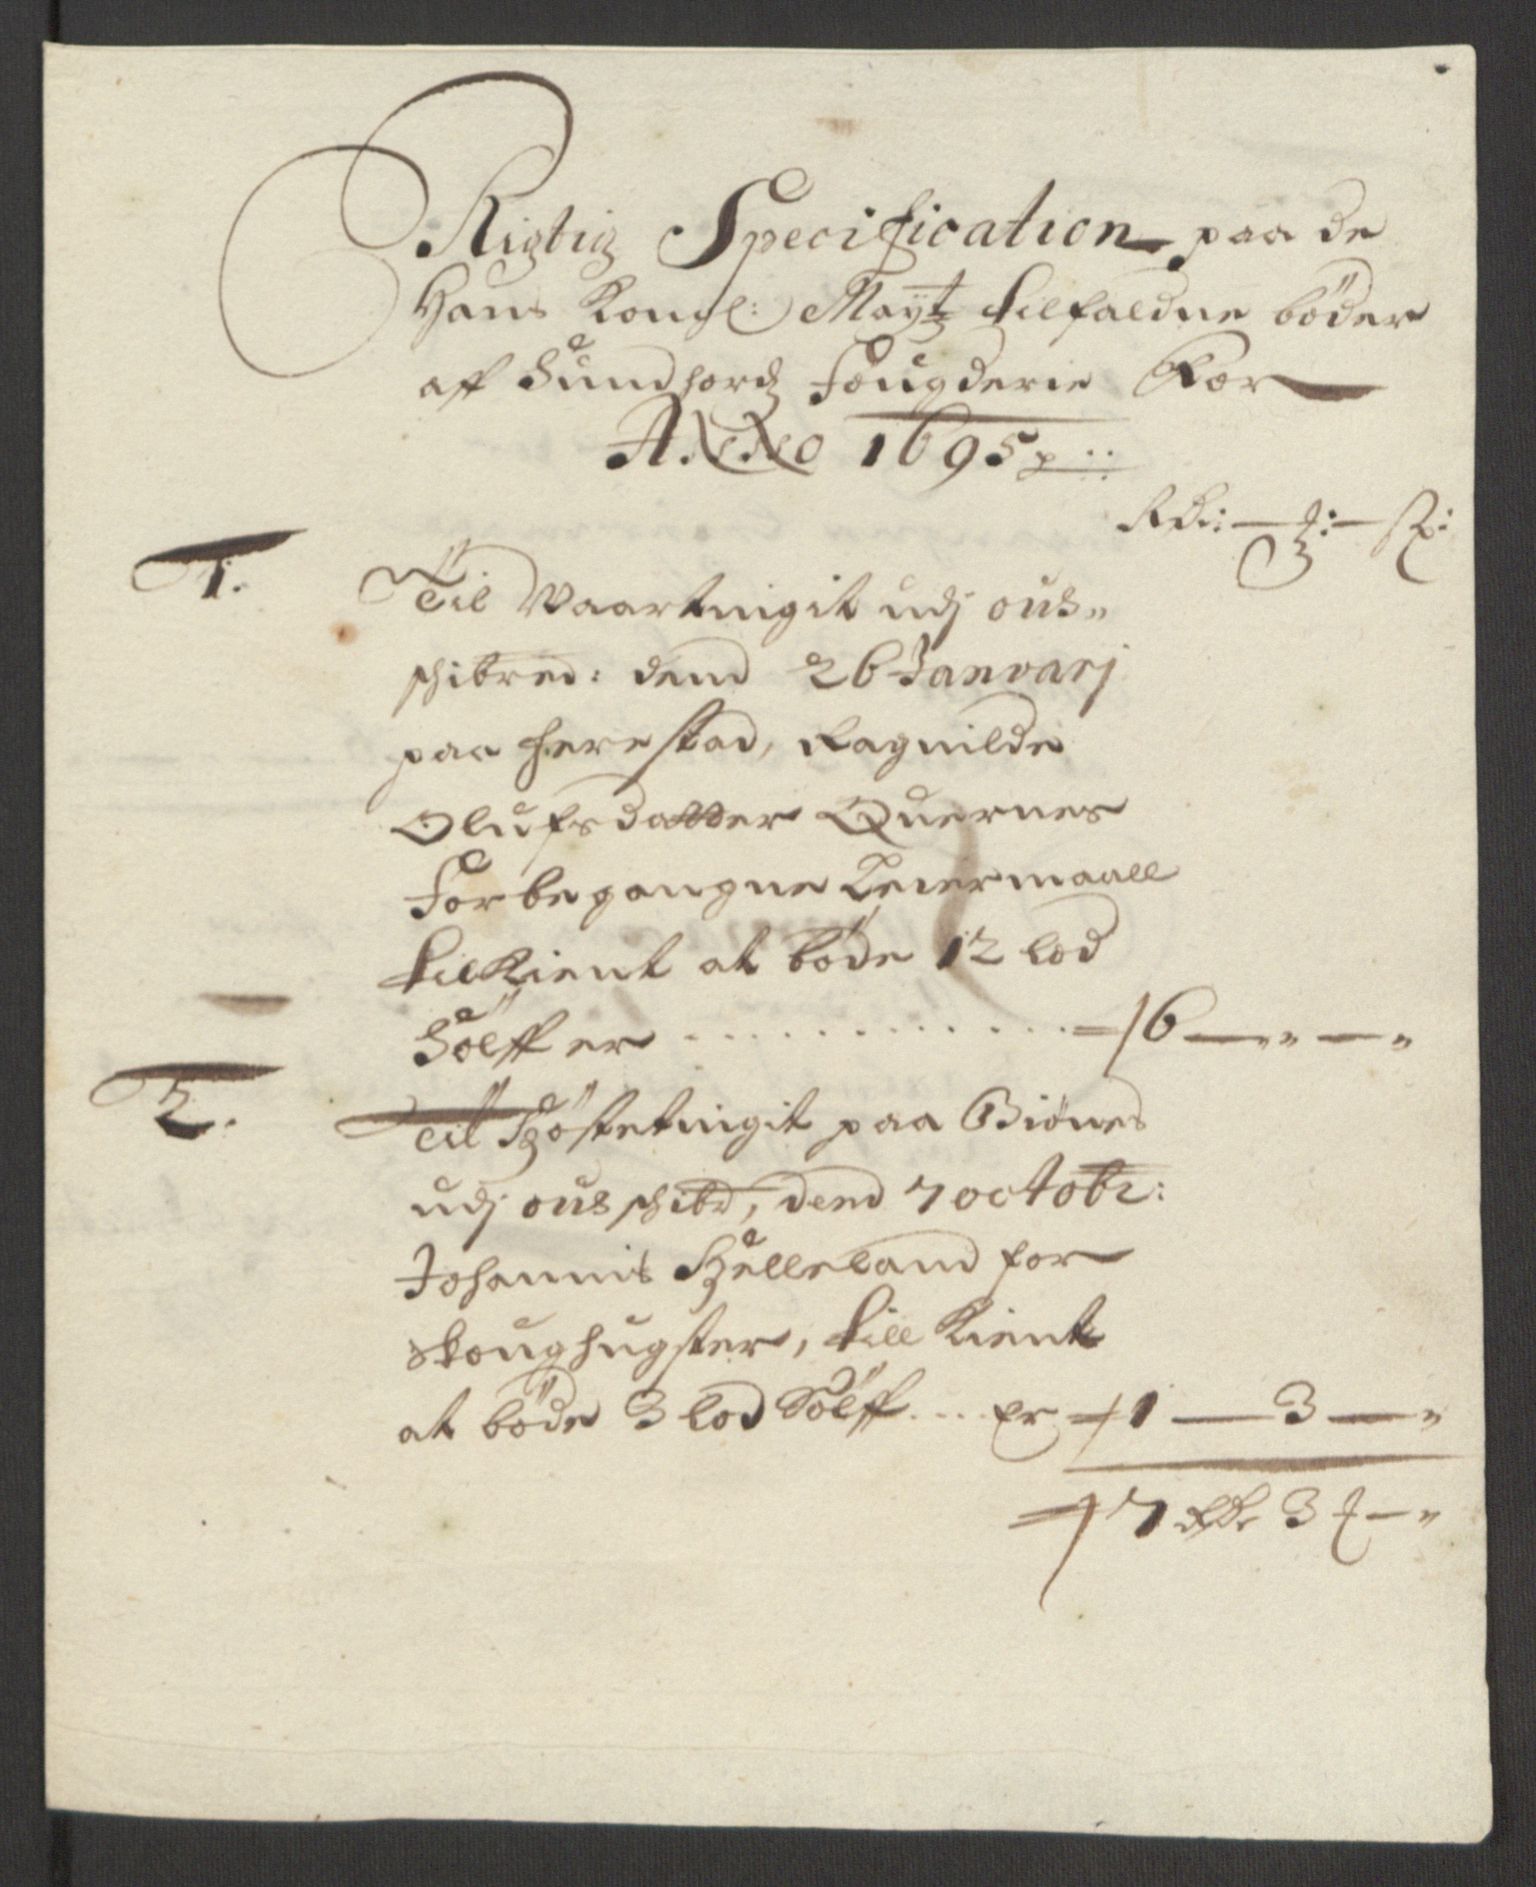 Rigtig Specification paa de
Hans Kongl: Mayt tilfaldne böder
aff Sundhords Fougderie For
ANNO 1695
Rdr: — : — s:
1.
Til Vaartingit udj ous„
schibred: dend 26 Janvarj
paa Herestad, Ragnilde
Olufsdatter Quernes
For begangne Leiermaall
tilkient at böde 12 lod
Sölff er . . . . . . . . . . . 6 — „ — „
2.
Til Höstetingit paa Biönes
udj ous schibr, dend 7 octobr:
Johannis Helleland for
skoughugster, till kient
at böde 3 lod Sölff . . . er 1 — 3 — „
7 Rdr 3 — „